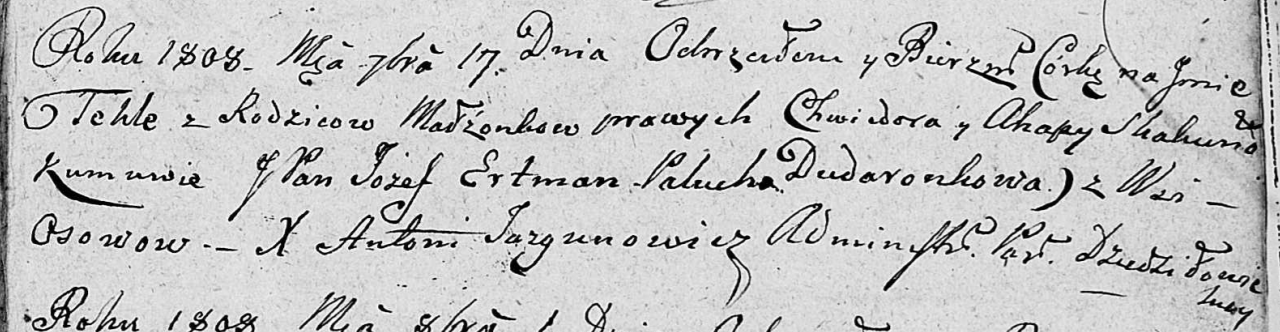 Roku 1808. Mcã 7brã 17. Dnia Ochrzciłem y Bierzm. Córkę na Jmie
Teklę z Rodzicow Małżonkow prawych Chwiedora y Ahapy Skakuno
Kumowie J Pan Józef Ertman Palucha Dudaronkowa) z Wsi –
Osowow. – X Antoni Jazgunowicz Administr. Par. Dziedziłowic
Roku 1808 Mcã 8brã